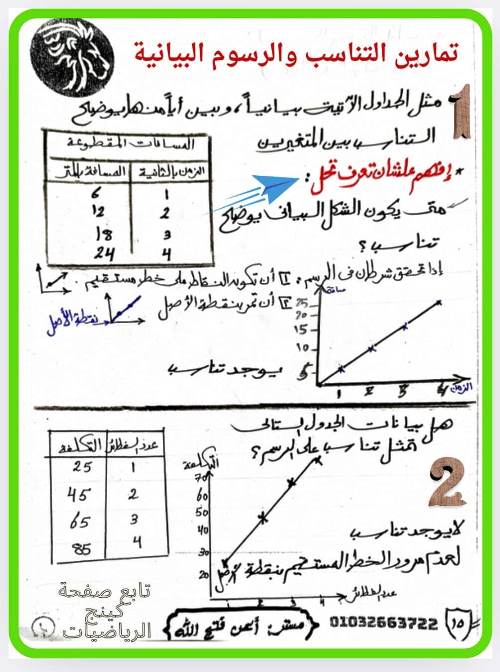 تمارين التناسب والرسوم البيانية
1
مثل الجداول الآتية بيانياً، وبين أياً منها يوضح
التناسب بين المتغيرين
المسافات المقطوعة
الزمن بالثانية المسافة بالمتر
1 6
2 12
3 18
4 24
* إفهم علشان تعرف تحل:
متى يكون الشكل البياني يوضح
تناسب؟
إذا تحقق شرطان في الرسم: 1 أن تكون النقاط على خط مستقيم.
2 أن تمر بنقطة الأصل
نقطة الأصل
مسافة
25
20
15
10
5
1 2 3 4 الزمن
يوجد تناسب
هل بيانات الجدول التالى
تمثل تناسب على الرسم؟
2
عدد الفطائر التكلفة
1 25
2 45
3 65
4 85
التكلفة
70
60
50
40
30
20
1 2 3 4
عدد الفطائر
لا يوجد تناسب
لعدم مرور الخط المستقيم بنقطة الأصل
تابع صفحة
كينج
الرياضيات
مستر: أيمن فتح الله
01032663722
١٥